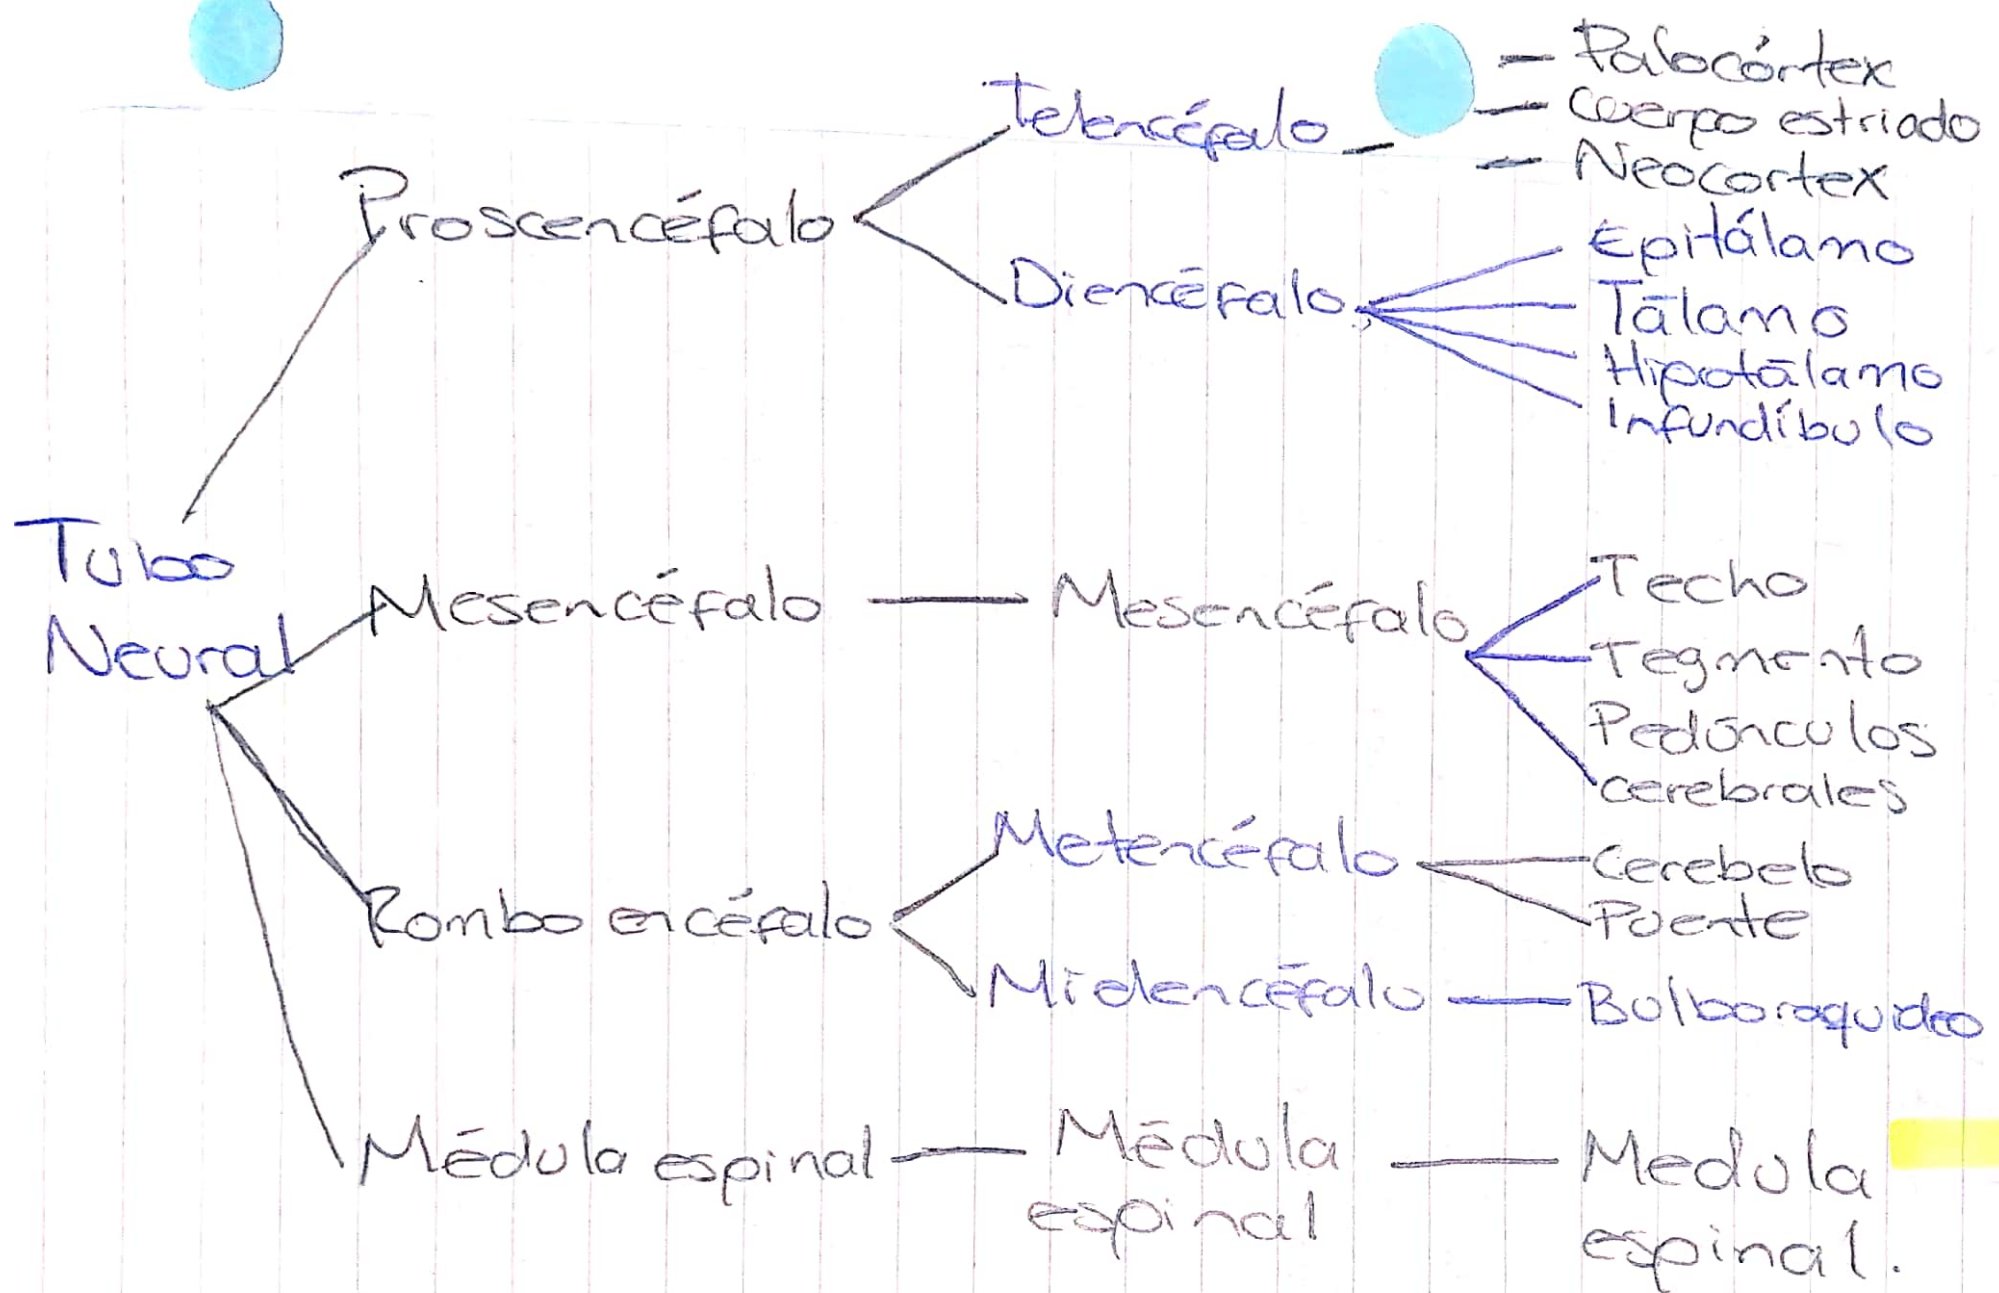 Proscencéfalo
Telencéfalo
Palocórtex
Cuerpo estriado
Neocortex
Diencéfalo
Epitálamo
Tálamo
Hipotálamo
Infundíbulo
Tubo
Neural
Mesencéfalo
Mesencéfalo
Techo
Tegmento
Pedúnculos
cerebrales
Romboencéfalo
Metencéfalo
Cerebelo
Puente
Midencéfalo
Bulboraquideo
Médula espinal
Médula
espinal
Medula
espinal.